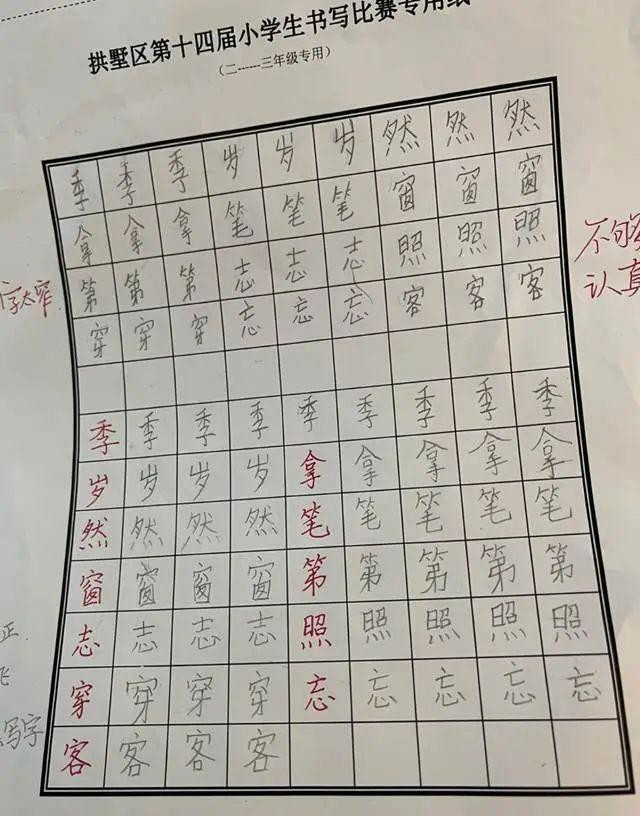 拱墅区第十四届小学生书写比赛专用纸
（二------三年级专用）
季季季岁岁岁然然然
拿拿拿笔笔笔窗窗窗
第第第志志志照照照
穿穿穿忘忘忘客客客
季季季季季季季季季
岁岁岁岁拿拿拿拿拿
然然然然笔笔笔笔笔
窗窗窗窗第第第第第
志志志志照照照照照
穿穿穿穿忘忘忘忘忘
客客客客
字太窄
不够
认真
正
飞
写字